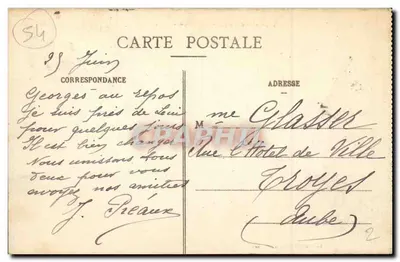 54
CARTE POSTALE
25 Juin
CORRESPONDANCE
Georges au repos
je suis près de lui
pour quelques jours
Il est bien changé
Nous unissons tous
deux pour vous
envoyer nos amitiés
J. Préaux
ADRESSE
Mme Glasser
Rue l'Hotel de Ville
Troyes
(Aube)
2